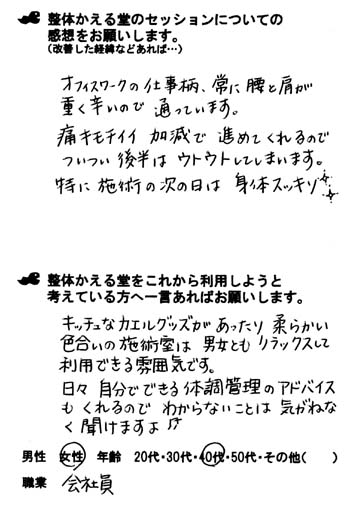 整体かえる堂のセッションについての
感想をお願いします。
(改善した経緯などあれば…)
オフィスワークの仕事柄、常に腰と肩が
重く辛いので 通っています。
痛キモチイイ 加減で 進めてくれるので
ついつい 後半は ウトウトしてしまいます。
特に 施術の次の日は 身体スッキリ
整体かえる堂をこれから利用しようと
考えている方へ一言あればお願いします。
キッチュなカエルグッズがあったり 柔らかい
色合いの施術室は 男女とも リラックスして
利用できる雰囲気です。
日々 自分でできる体調管理のアドバイス
も くれるので わからないことは 気がねな
く聞けますよ
男性 女性 年齢 20代・30代・40代・50代・その他( )
職業 会社員